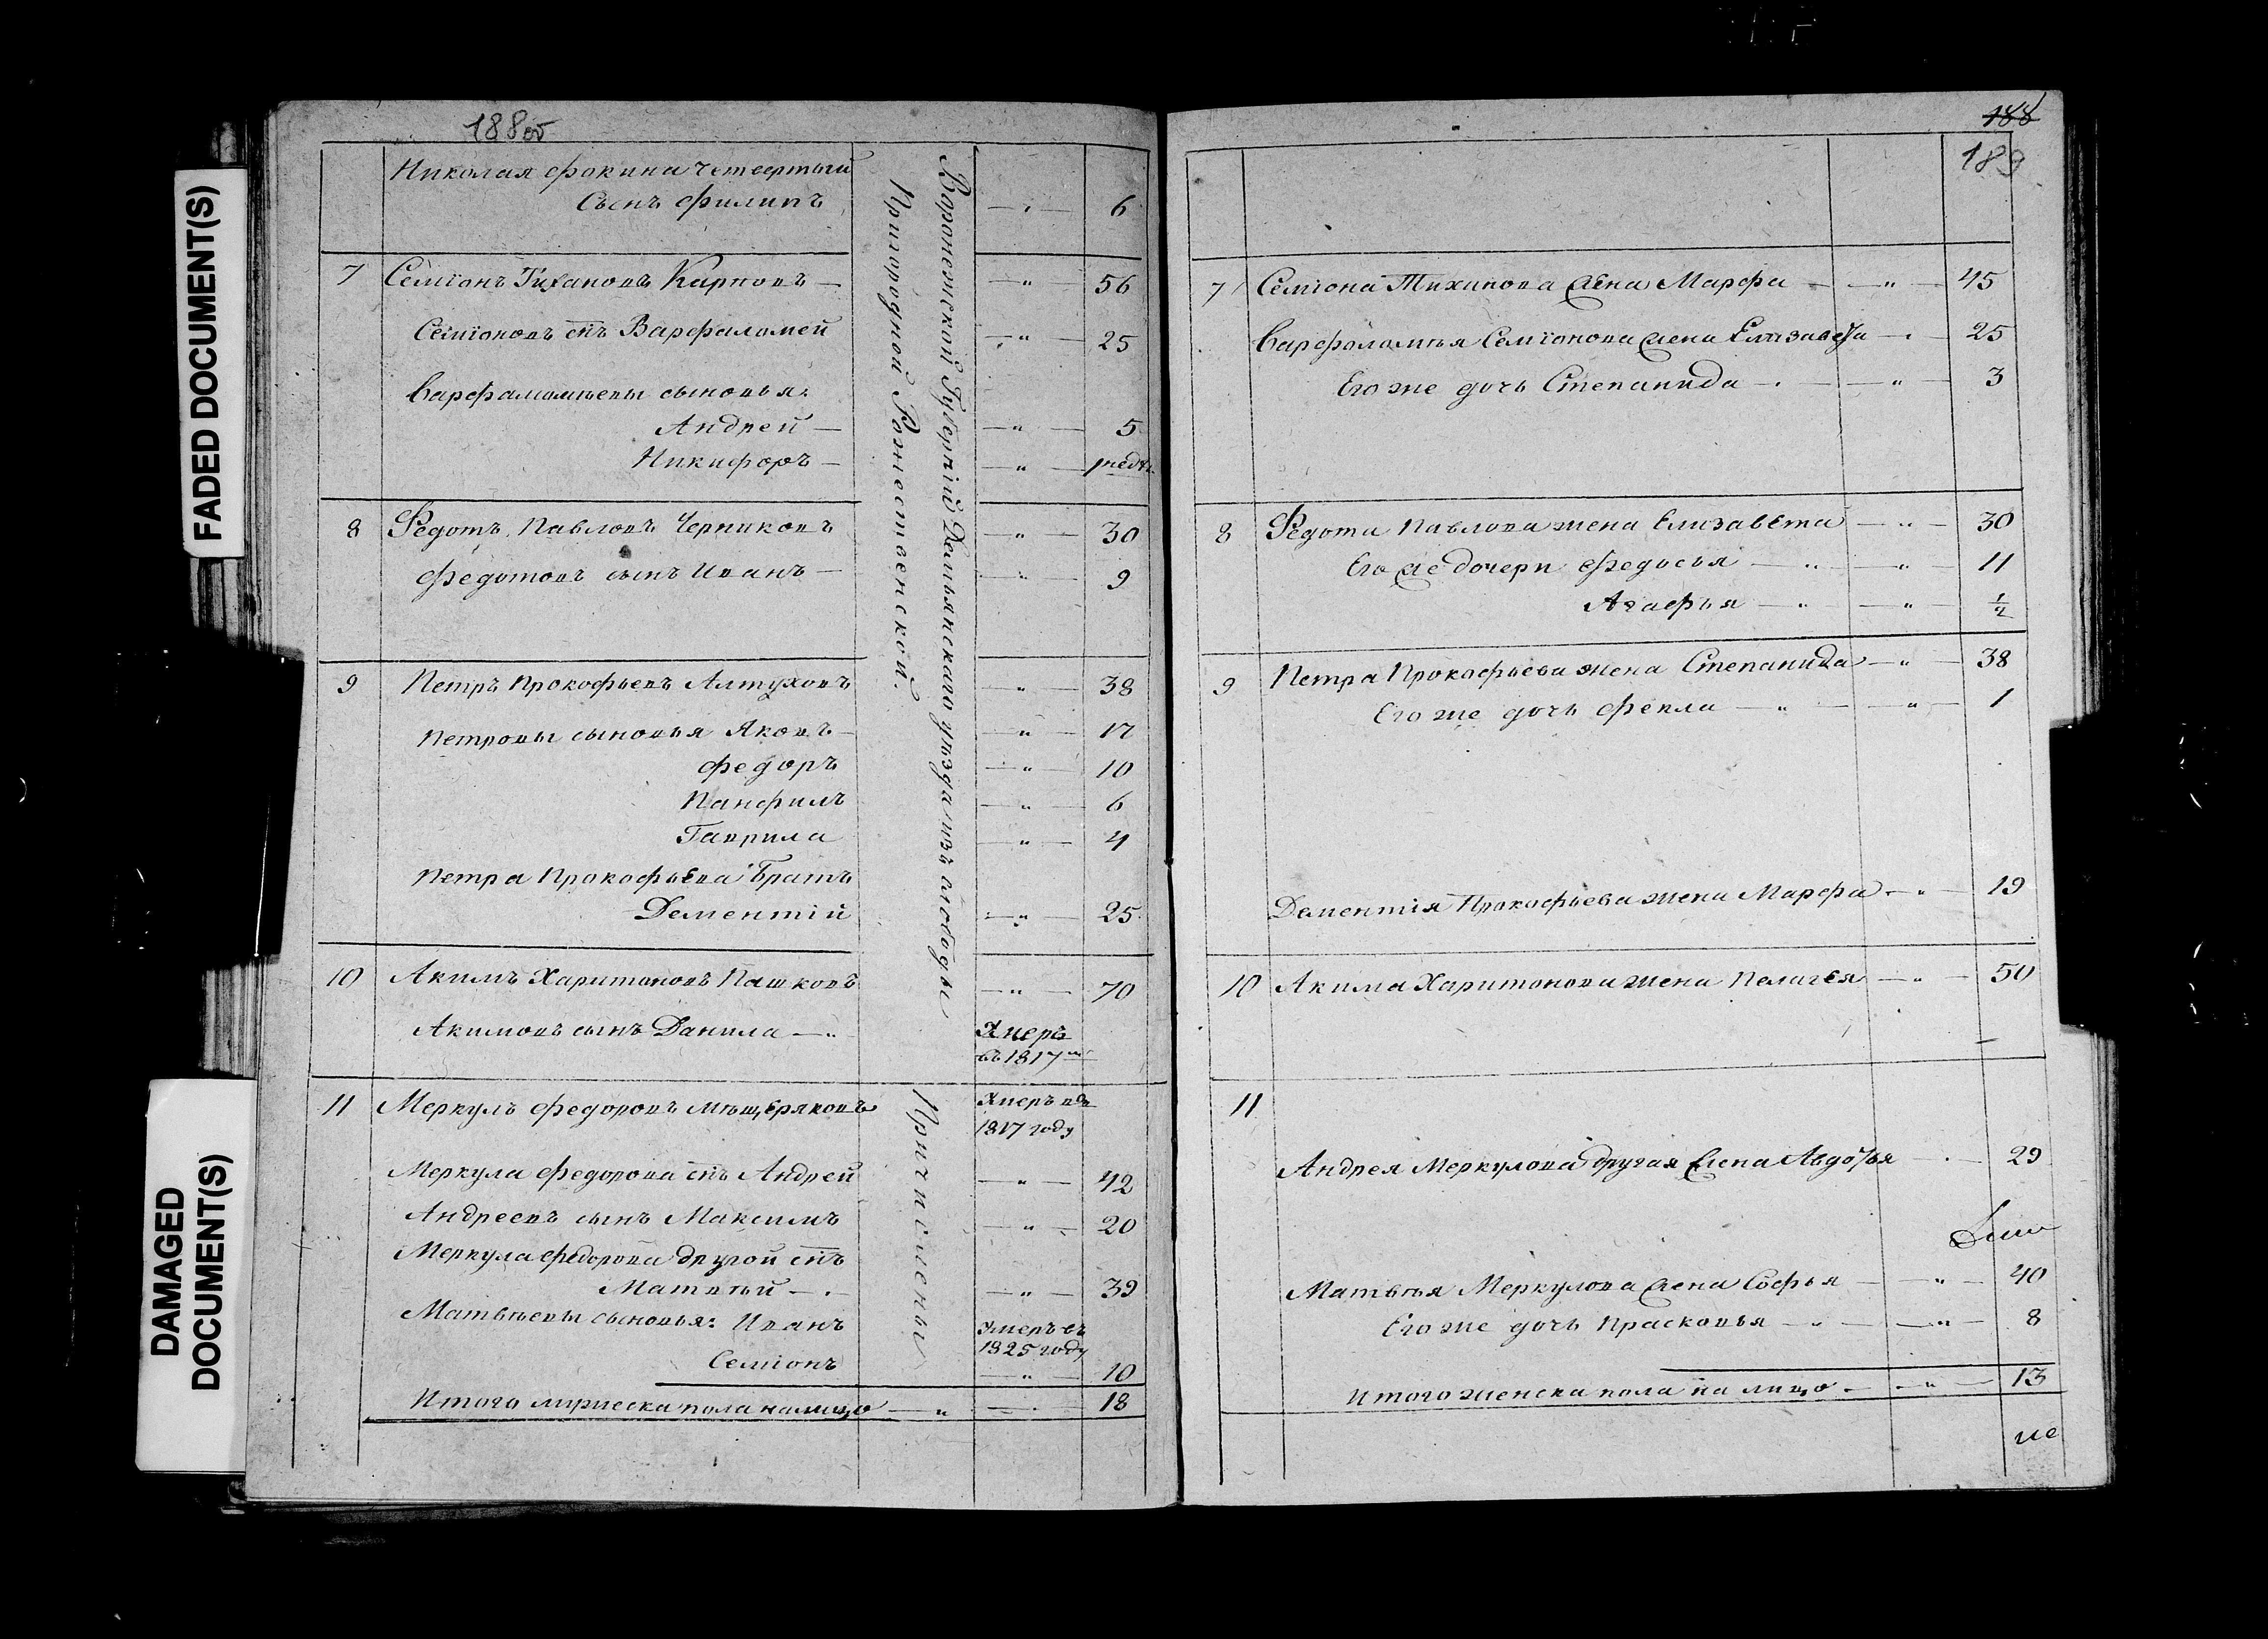 FADED DOCUMENT(S)
DAMAGED
DOCUMENT(S)
188 об
Николая Фокина четвертый
Сынъ Филипъ 6
7 Семіонъ Тихановъ Карповъ — " — 56
Семіоновъ сн҃ъ Варфаломей — " — 25
Варфаломѣевы сыновья:
Андрей — " — 5
Никифоръ — " — 1 неде.
8 Федотъ Павловъ Черниковъ — " — 30
Федотовъ сынъ Иванъ — " — 9
9 Петръ Прокофьевъ Алтуховъ — " — 38
Петровы сыновья Яковъ — " — 17
Федоръ — " — 10
Панфилъ — " — 6
Гаврила — " — 4
Петра Прокофьева Братъ
Дементій — " — 25
10 Акимъ Харитоновъ Пашковъ — " — 70
Акимовъ сынъ Данила — " Умеръ
въ 1817 м
11 Меркулъ Федоровъ Мѣщеряковъ Умеръ въ
1817 году
Меркула Федорова сн҃ъ Андрей — " — 42
Андреевъ сынъ Максимъ — " — 20
Меркула Федорова другой сн҃ъ
Матвѣй — " — 39
Матвѣевы сыновья: Иванъ Умеръ въ
1825 году
Семіонъ — " — 10
Итого мужеска пола налицо — " — 18
Воронежской Губерніи Землянскаго уѣзда изъ слободы
Пригородной Рожественской.
Причислены
188
189
7 Семіона Тихинова жена Марфа — " — 45
Варфоломѣя Семіонова жена Елизавета — " — 25
Его же дочь Степанида — " — 3
8 Федота Павлова жена Елизавета — " — 30
Его же дочери Федосья — " — 11
Агафья — " — ½
9 Петра Прокофьева жена Степанида — " — 38
Его же дочь Фекла — " — 1
Дементія Прокофьева жена Марфа — " — 19
10 Акима Харитонова жена Пелагея — " — 50
11
Андрея Меркулова другая жена Авдотья — 29
Матвѣя Меркулова жена Софья — " — 40
Его же дочь Прасковья — " — 8
Итого женска пола на лицо — " — 13